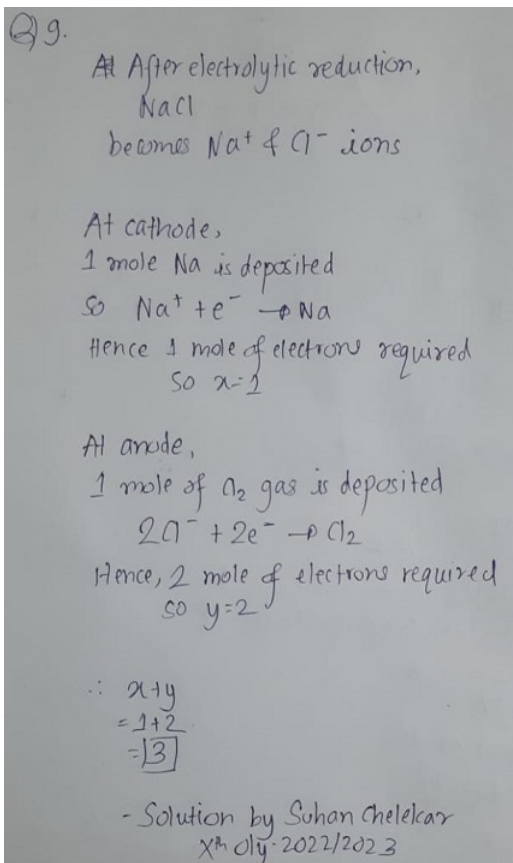 Q9.
After electrolytic reduction,
NaCl
becomes Na⁺ & Cl⁻ ions
At cathode,
1 mole Na is deposited
so Na⁺ + e⁻ → Na
Hence 1 mole of electrons required
so x=1
At anode,
1 mole of Cl₂ gas is deposited
2Cl⁻ + 2e⁻ → Cl₂
Hence, 2 mole of electrons required
so y=2
∴ x+y
= 1+2
= 3
- Solution by Suhan Chelekar
Xth Oly. 2022/2023